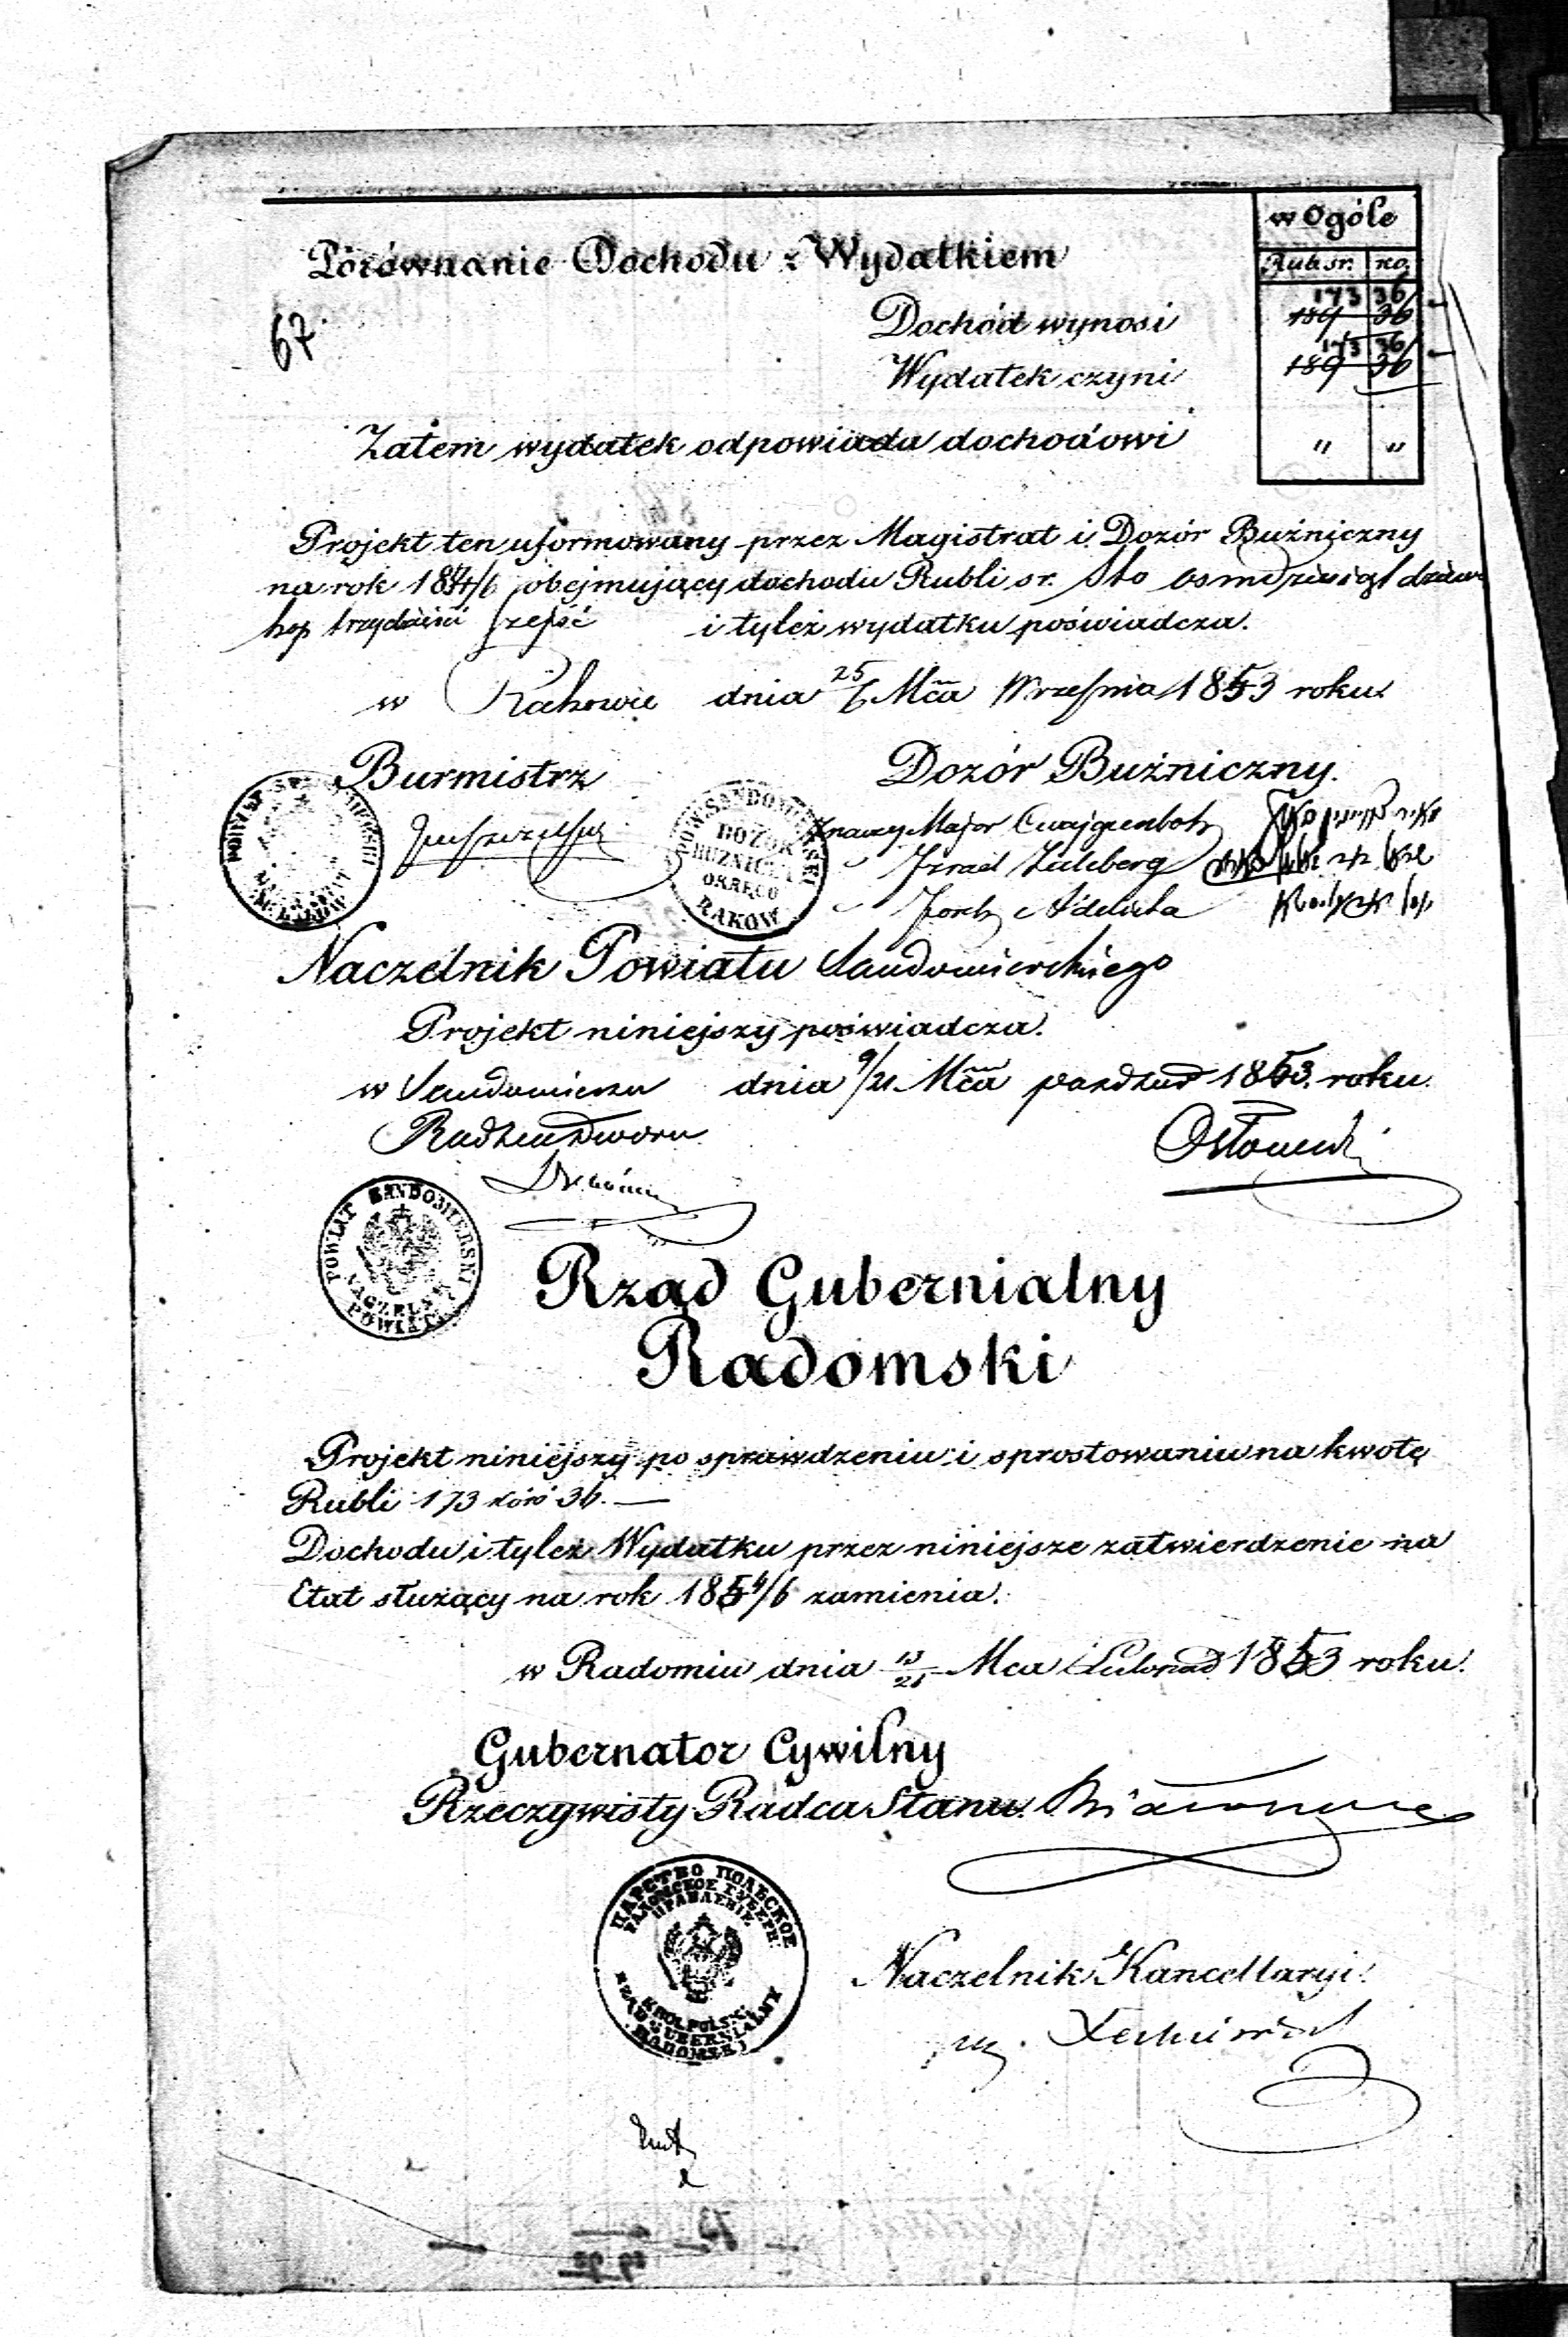 w Ogóle
Porównanie Dochodu z Wydatkiem
Rub sr. ko.
67.
173 36
Dochód wynosi 189 36
173 36
Wydatek czyni 189 36
Zatem wydatek odpowiada dochodowi " "
Projekt ten uformowany przez Magistrat i Dozór Buźniczny
na rok 1854/6 obejmujący dochodu Rubli sr. Sto osmdziesiąt
kop trzydzieści szesć i tyleż wydatku poświadcza.
w Rakowie dnia 25/6 Mca Wrzesnia 1853 roku.
Burmistrz Dozór Buźniczny.
POWIAT SANDOMIERSKI
POW. SANDOMIERSKI
DOZÓR
BUZNICZ.
OKRĘGO
RAKÓW
Major
Izrael
Josek
Naczelnik Powiatu Sandomierskiego
Projekt niniejszy poświadcza.
w Sandomierzu dnia 9/21 Mca pazdzier 1853. roku.
Radzca Dworu
POWIAT SANDOMIERSKI
NACZELNIK
POWIATU
Rząd Gubernialny
Radomski
Projekt niniejszy po sprawdzeniu i sprostowaniu na kwotę
Rubli 173 kop 36.—
Dochodu i tyleż Wydatku przez niniejsze zatwierdzenie na
Etat służący na rok 1854/6 zamienia.
w Radomiu dnia Mca Listopad 1853 roku.
Gubernator Cywilny
Rzeczywisty Radca Stanu.
ЦАРСТВО ПОЛЬСКОЕ
РАДОМСКОЕ ГУБЕРН.
ПРАВЛЕНІЕ
KROL. POLSKI
RZĄD GUBERNIALNY
RADOMSKI
Naczelnik Kancellaryi.